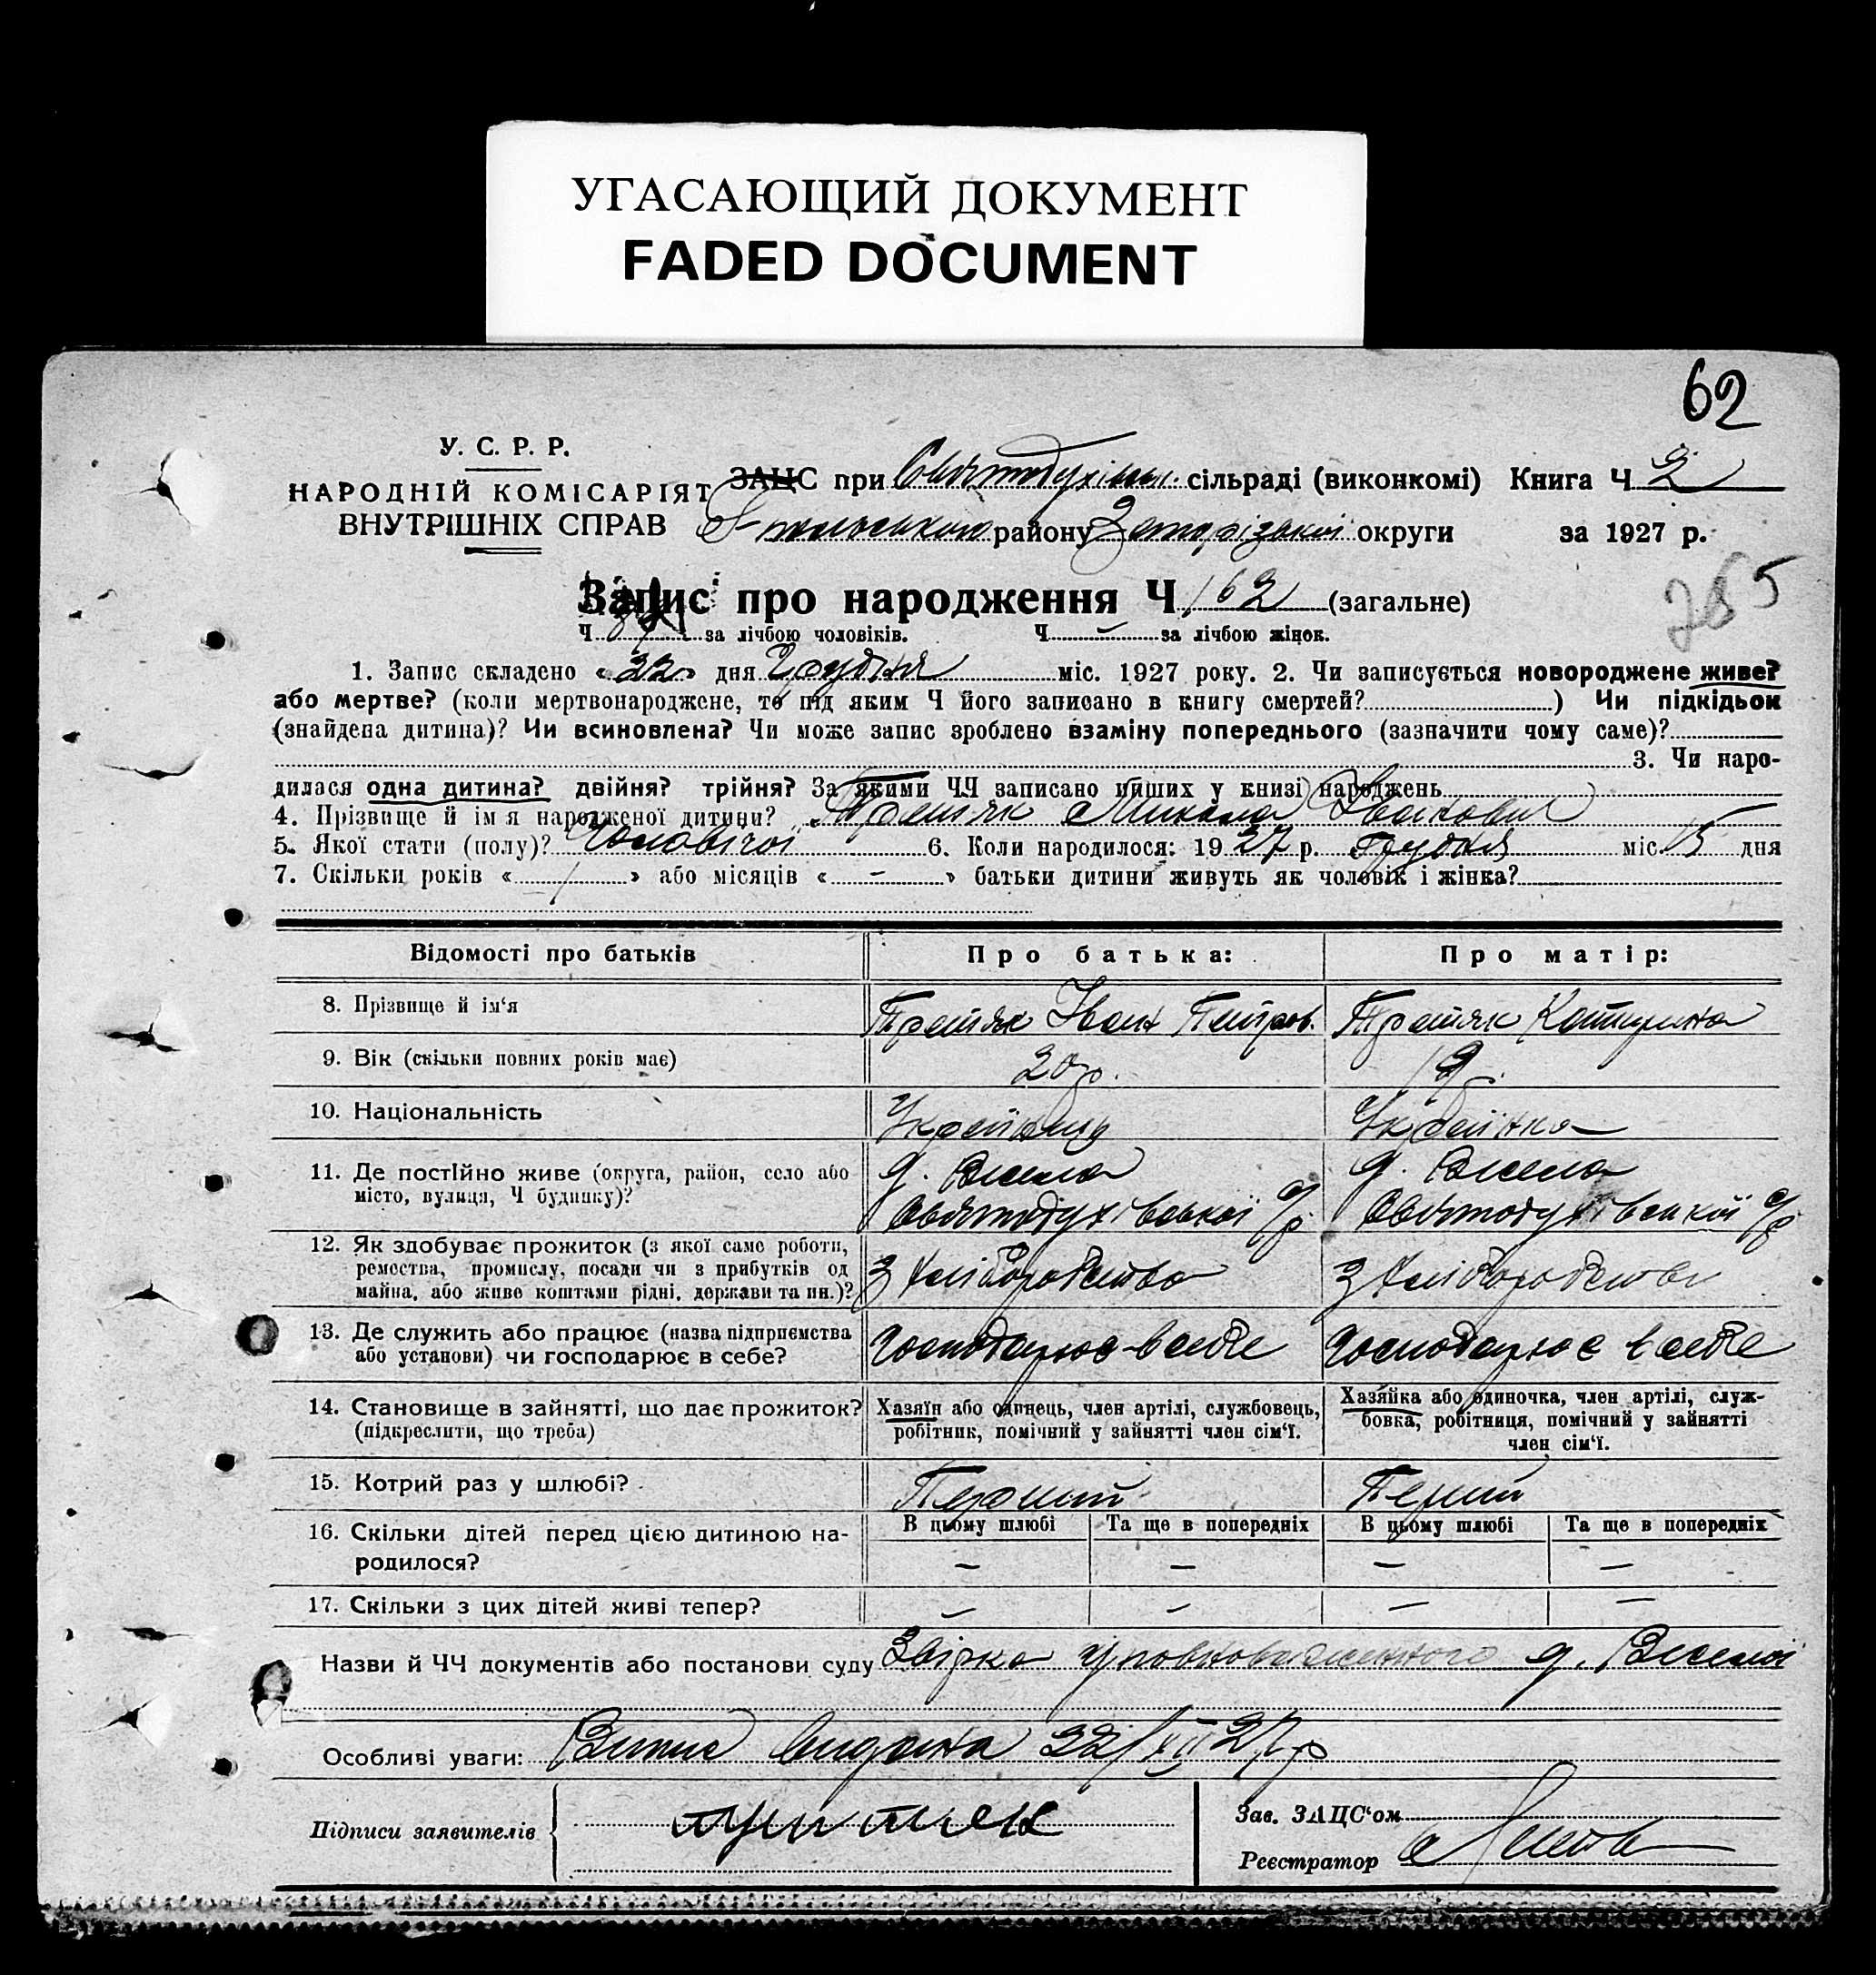 УГАСАЮЩИЙ ДОКУМЕНТ
FADED DOCUMENT
62
У. С. Р. Р.
НАРОДНІЙ КОМІСАРІЯТ
ВНУТРІШНІХ СПРАВ
ЗАЦС при сільраді (виконкомі) Книга Ч 2
району Запорізької округи за 1927 р.
Запис про народження Ч 162 (загальне)
265
Ч за лічбою чоловіків. Ч – за лічбою жінок.
1. Запис складено «22» дня Грудня міс. 1927 року. 2. Чи записується новороджене живе?
або мертве? (коли мертвонароджене, то під яким Ч його записано в книгу смертей?) Чи підкідьок
(знайдена дитина)? Чи всиновлена? Чи може запис зроблено взаміну попереднього (зазначити чому саме)?
3. Чи наро-
дилася одна дитина? двійня? трійня? За якими ЧЧ записано инших у книзі народжень
4. Прізвище й імя народженої дитини? Третяк Микола Іванович
5. Якої стати (полу)? Чоловічої 6. Коли народилося: 1927 р. Грудня міс. 15 дня
7. Скільки років « / » або місяців « – » батьки дитини живуть як чоловік і жінка?
Відомості про батьків Про батька: Про матір:
8. Прізвище й ім'я Третяк Іван Петров. Третяк Катерина
9. Вік (скільки повних років має) 20 р. 19 р.
10. Національність Українець Українка
11. Де постійно живе (округа, район, село або
місто, вулиця, Ч будинку)?
д. Весела д. Весела
Святодухівської с/р Святодухівської с/р
12. Як здобуває прожиток (з якої саме роботи,
ремества, промислу, посади чи з прибутків од
майна, або живе коштами рідні, держави та ин.)?
З хліборобства З хліборобства
13. Де служить або працює (назва підприємства
або установи) чи господарює в себе?
Господарює в себе Господарює в себе
14. Становище в зайнятті, що дає прожиток?
(підкреслити, що треба)
Хазяїн або одинець, член артілі, службовець,
робітник, помічний у зайнятті член сім'ї.
Хазяйка або одиночка, член артілі, служ-
бовка, робітниця, помічний у зайнятті
член сім'ї.
15. Котрий раз у шлюбі? Перший Перший
16. Скільки дітей перед цією дитиною на-
родилося?
В цьому шлюбі Та ще в попередніх В цьому шлюбі Та ще в попередніх
– – – –
17. Скільки з цих дітей живі тепер? – – – –
Назви й ЧЧ документів або постанови суду Звірка уповноваженного д. Веселої
Особливі уваги: Витяг видана 22/XII 27 р
Підписи заявителів
Зав. ЗАЦС'ом
Реєстратор